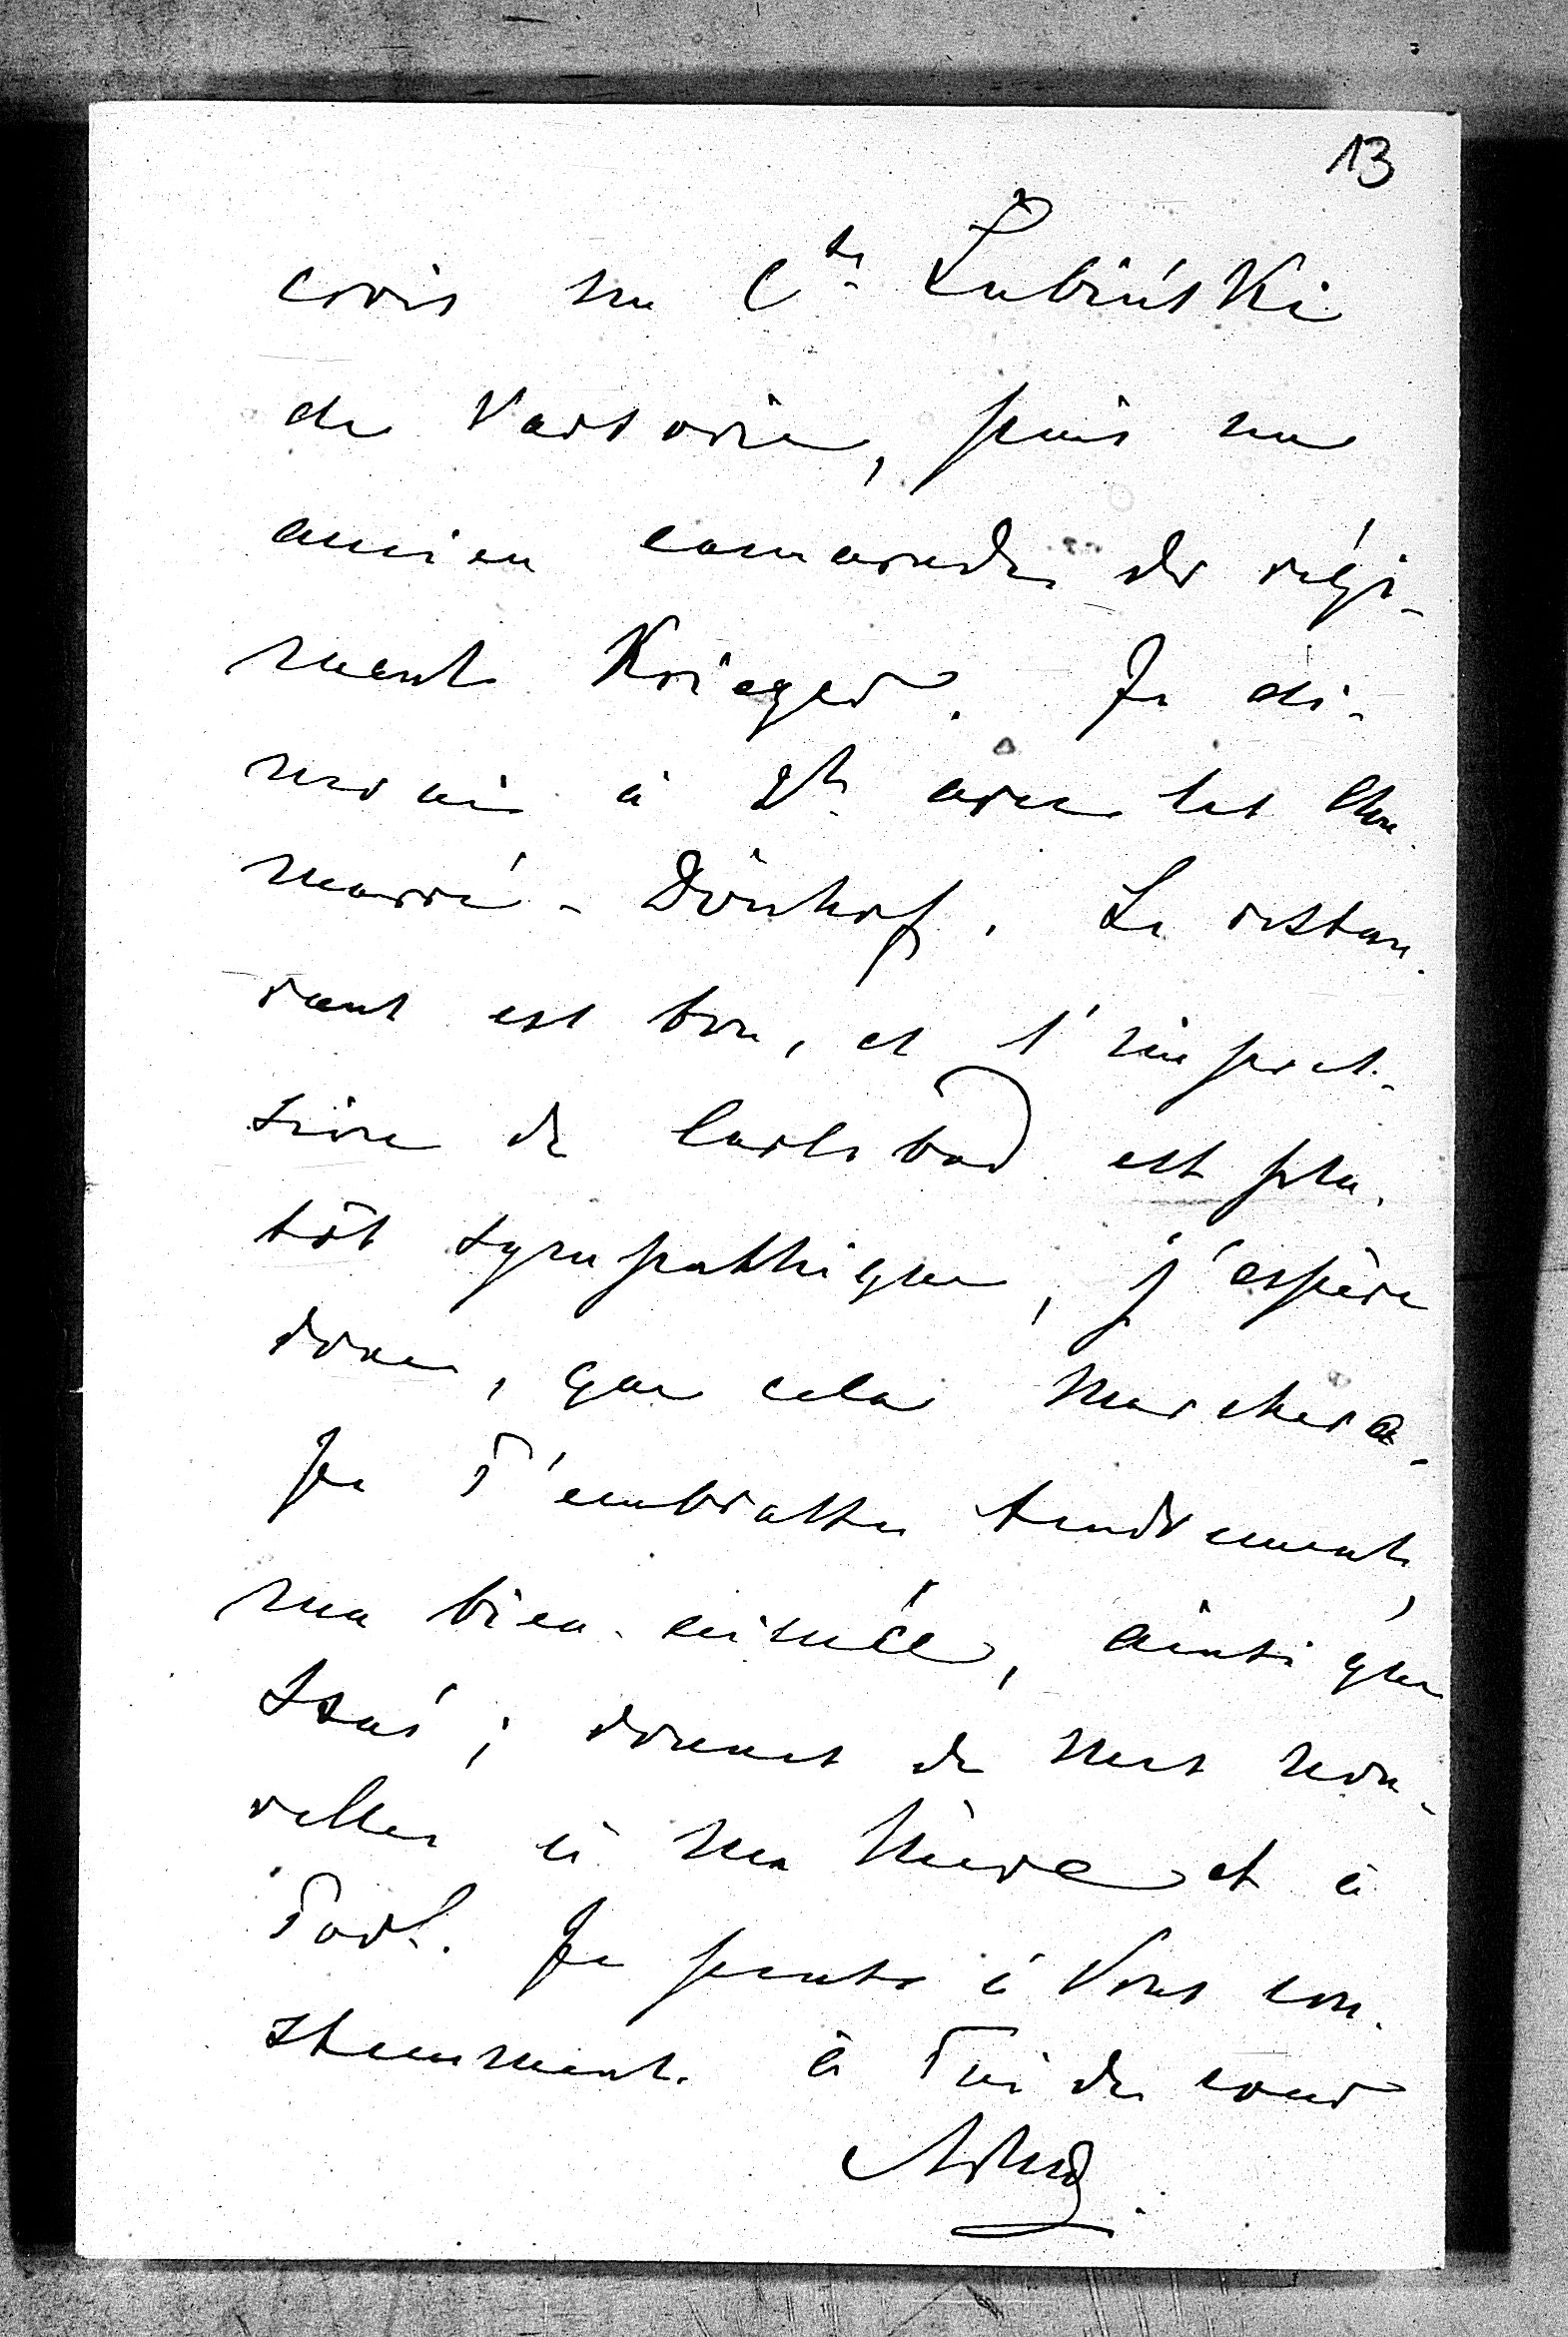 13
crois un Cte Łubiński
de Varsovie, puis un
ancien camarade de régi-
ment Krieger. Je dî-
nerai à 2h. avec les
marré-Dönhof. Le restau-
rant est bon, et l'impres-
sion de Carlsbad est plu-
tôt sympathique, j'espère
donc, que cela marchera.
Je T'embrasse tendrement,
ma bien-aimée, ainsi que
donnes de mes nou-
velles à ma Mère et à
Je pense à Vous con-
stamment. à Toi de coeur